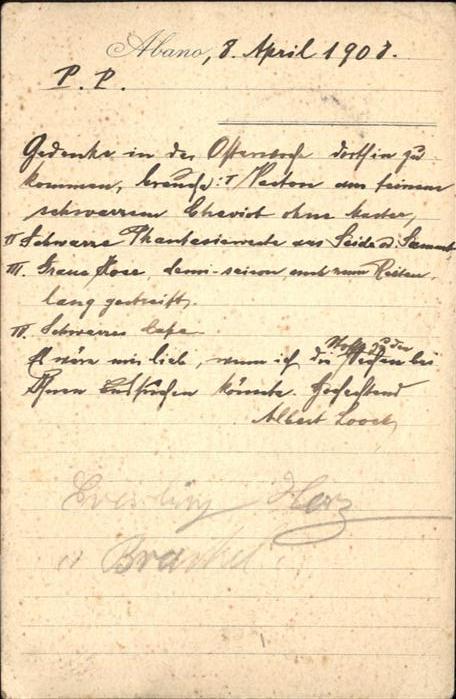 Abano, 8. April 1908.
P. P.
Gedenke in der Osterwoche dorthin zu
kommen, brauche: I Veston aus feinem
schwarzem Cheviot ohne Muster,
II Schwarze Phantasieweste aus Seide od. Sammt,
III. Graue Hose, demi-saison, auch zum Reiten,
lang gestreift.
IV. Schwarzes Cape
Es wäre mir lieb, wenn ich die Stoffe zu den Sachen bei
Ihnen aussuchen könnte. Hochachtend
Albert Loock
Herz